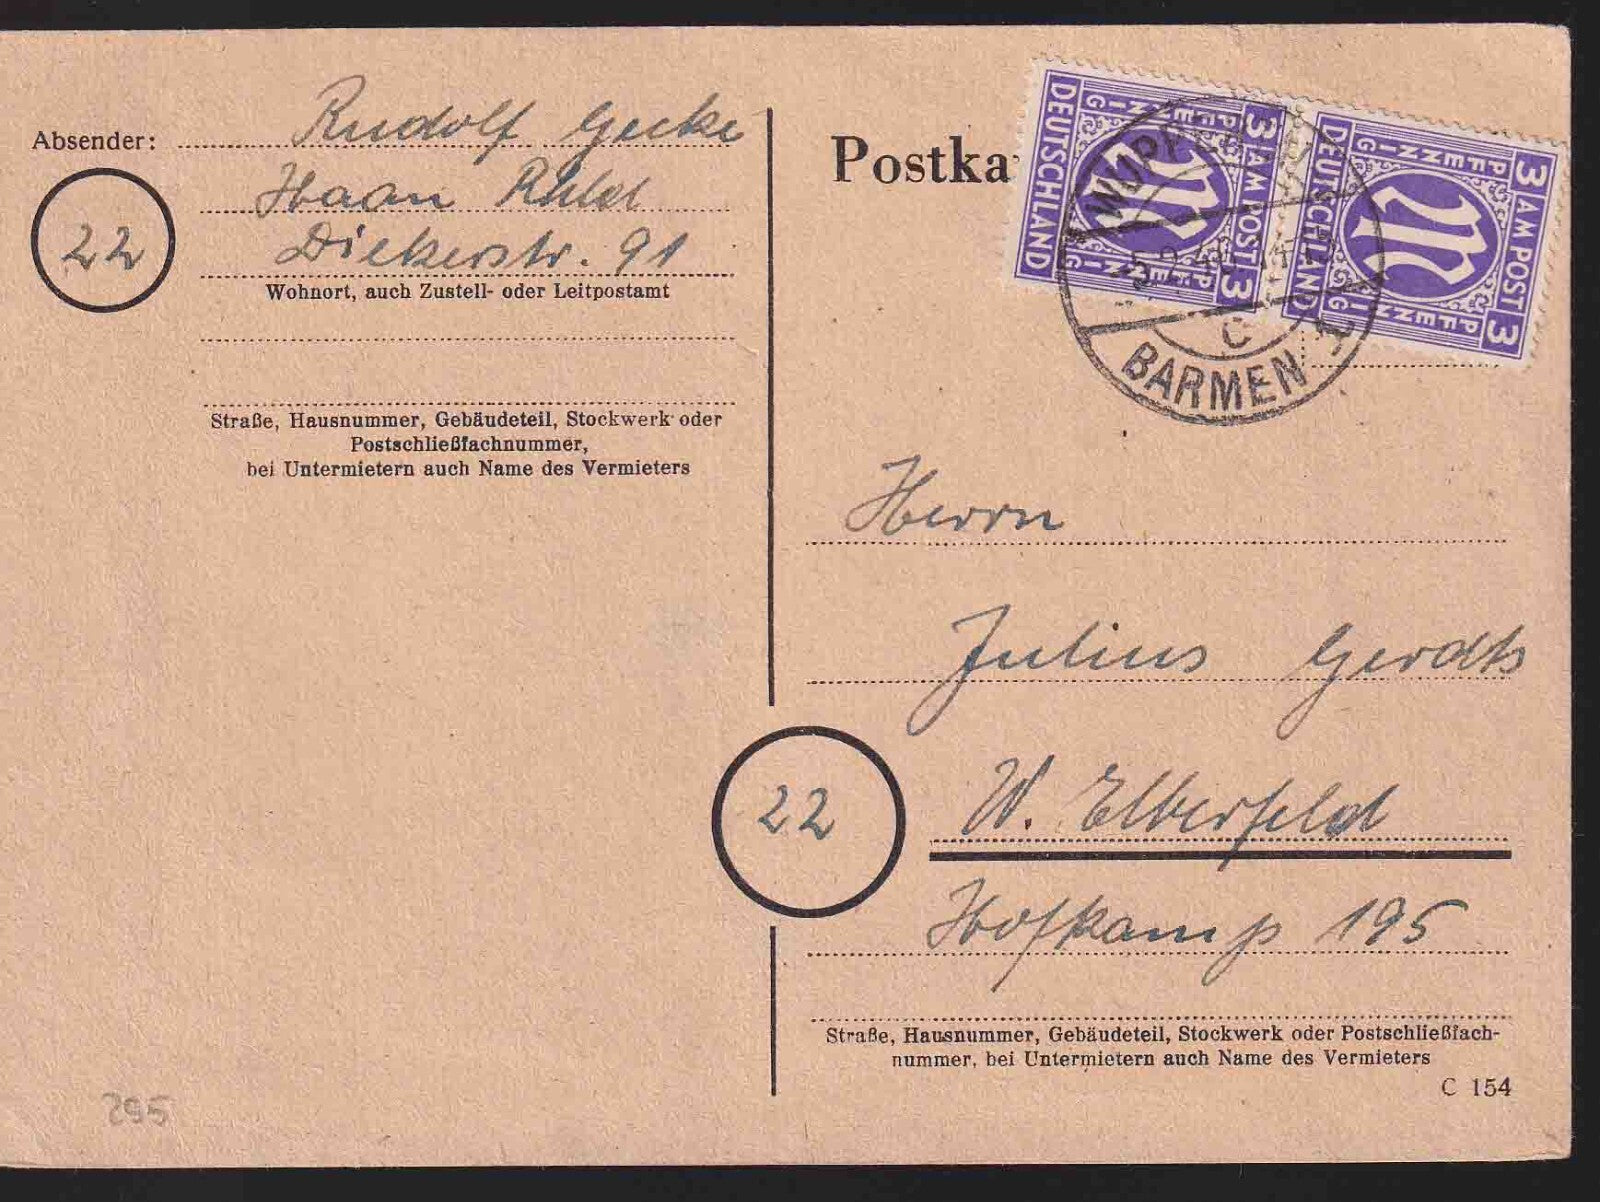 Absender: Rudolf Gecke
Haan Rhld
22
Diekerstr. 91
Wohnort, auch Zustell- oder Leitpostamt
Straße, Hausnummer, Gebäudeteil, Stockwerk oder
Postschließfachnummer,
bei Untermietern auch Name des Vermieters
295
Postka
DEUTSCHLAND
PFENNIG
3 AM POST 3
PFENNIG
DEUTSCHLAND
PFENNIG
3 AM POST 3
PFENNIG
M
M
WUPPERTAL
C
BARMEN
Herrn
Julius Gerdts
22
W. Elberfeld
Hofkamp 195
Straße, Hausnummer, Gebäudeteil, Stockwerk oder Postschließfach-
nummer, bei Untermietern auch Name des Vermieters
C 154